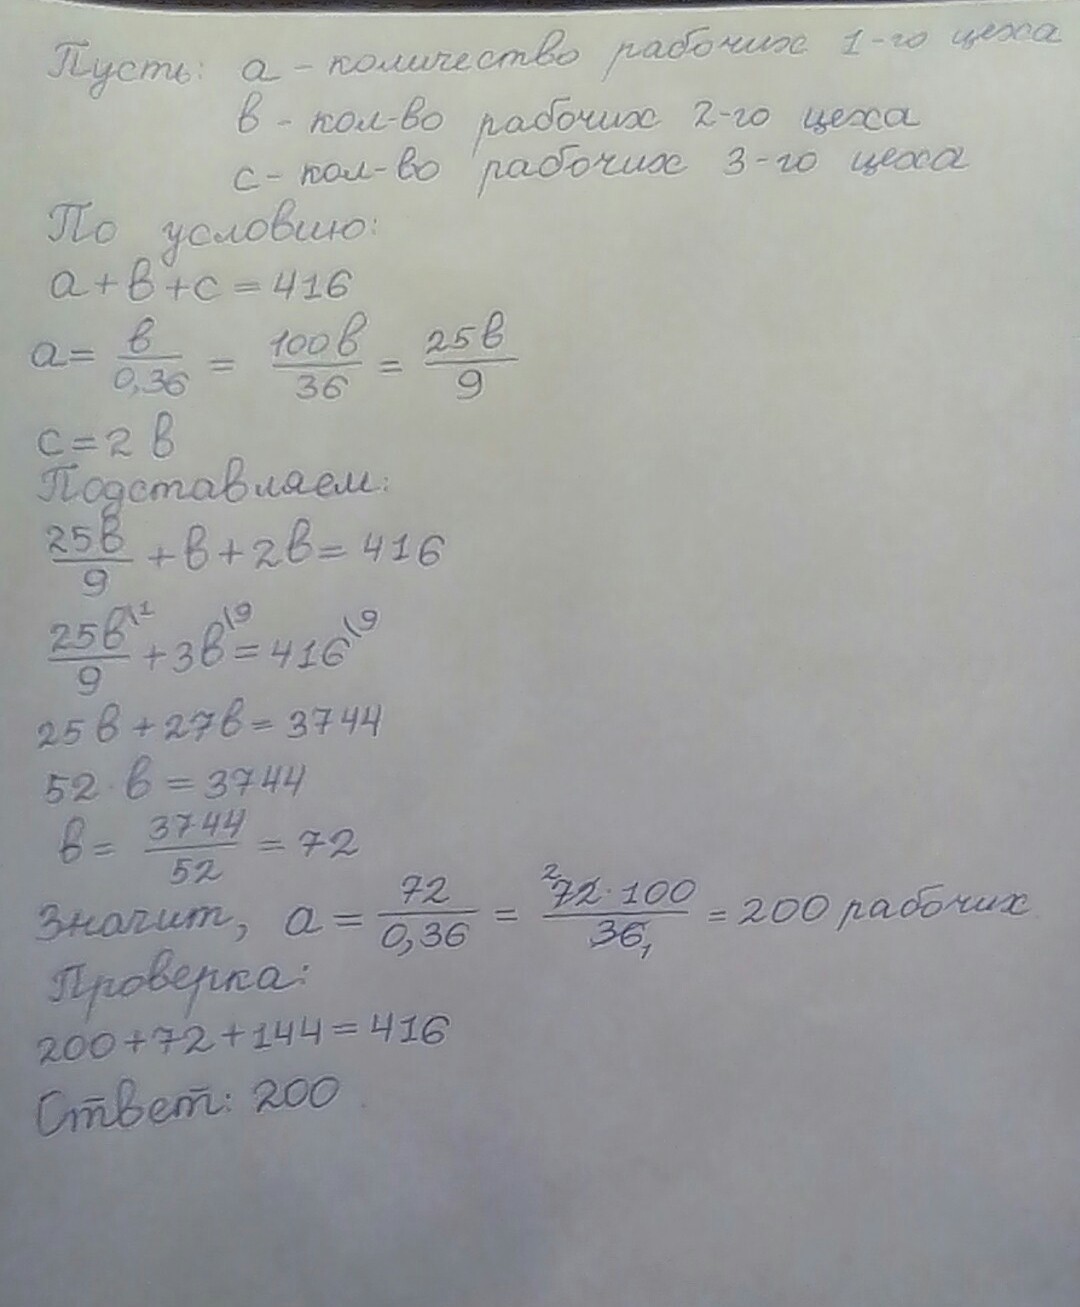 Пусть: a - количество рабочих 1-го цеха
в - кол-во рабочих 2-го цеха
c - кол-во рабочих 3-го цеха
По условию:
a+в+c=416
a= в/0,36 = 100в/36 = 25в/9
c=2в
Подставляем:
25в/9 +в+2в=416
25в\1/9 +3в\9=416\9
25в+27в=3744
52·в=3744
в= 3744/52 =72
Значит, a= 72/0,36 = 2 72·100/36 1 =200 рабочих
Проверка:
200+72+144=416
Ответ: 200